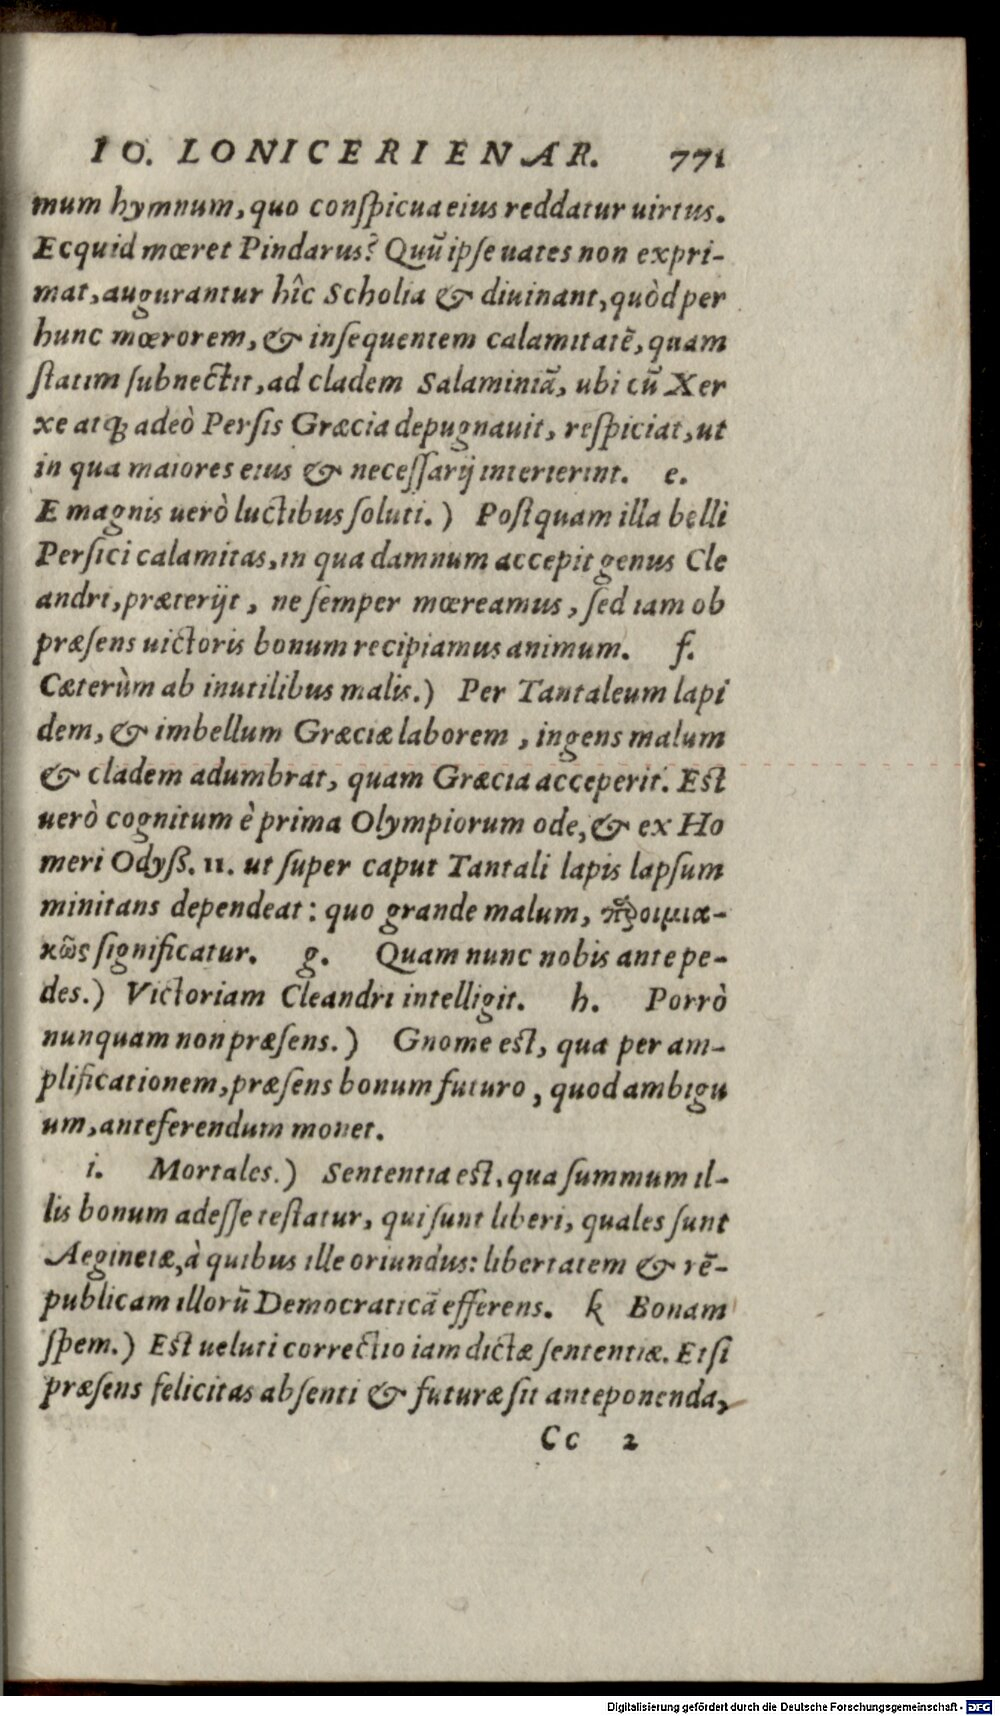 IO. LONICERI ENAR. 771
mum hymnum, quo conſpicua eius reddatur uirtus.
Ecquid mœret Pindarus? Quū ipſe uates non expri-
mat, augurantur hîc Scholia & diuinant, quòd per
hunc mœrorem, & inſequentem calamitatē, quam
ſtatim ſubnectit, ad cladem Salaminiā, ubi cū Xer
xe atq; adeò Perſis Græcia depugnauit, reſpiciat, ut
in qua maiores eius & neceſſarij interierint. e.
E magnis uerò luctibus ſoluti.) Poſtquam illa belli
Perſici calamitas, in qua damnum accepit genus Cle
andri, præterijt, ne ſemper mœreamus, ſed iam ob
præſens uictoris bonum recipiamus animum. f.
Cæterùm ab inutilibus malis.) Per Tantaleum lapi
dem, & imbellum Græciæ laborem, ingens malum
& cladem adumbrat, quam Græcia acceperit. Eſt
uerò cognitum è prima Olympiorum ode, & ex Ho
meri Odyſß. 11. ut ſuper caput Tantali lapis lapſum
minitans dependeat: quo grande malum, προιμια-
κῶς ſignificatur. g. Quam nunc nobis ante pe-
des.) Victoriam Cleandri intelligit. h. Porrò
nunquam non præſens.) Gnome eſt, qua per am-
plificationem, præſens bonum futuro, quod ambigu
um, anteferendum monet.
i. Mortales.) Sententia eſt, qua ſummum il-
lis bonum adeſſe teſtatur, qui ſunt liberi, quales ſunt
Aeginetæ, à quibus ille oriundus: libertatem & rē-
publicam illorū Democraticā efferens. k Bonam
ſpem.) Eſt ueluti correctio iam dictæ ſententiæ. Etſi
præſens felicitas abſenti & futuræ ſit anteponenda,
Cc 2
Digitalisierung gefördert durch die Deutsche Forschungsgemeinschaft - DFG